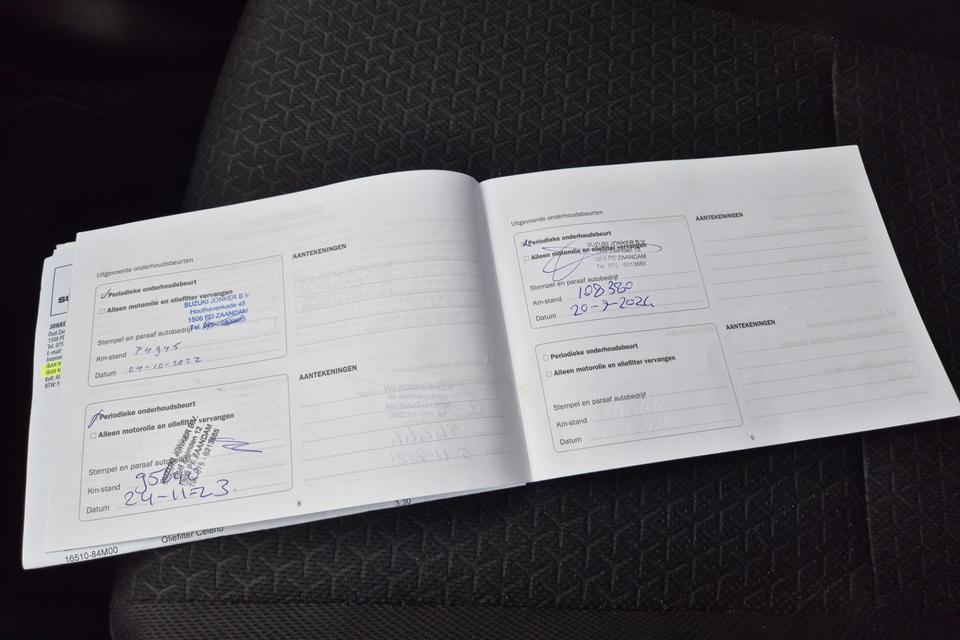 Uitgevoerde onderhoudsbeurten
AANTEKENINGEN
Periodieke onderhoudsbeurt
Alleen motorolie en oliefilter vervangen
SUZUKI JONKER B.V.
Houthavenkade 48
1506 PD ZAANDAM
Tel.
Stempel en paraaf autobedrijf
Km-stand 74945
Datum 04-10-2022
AANTEKENINGEN
Periodieke onderhoudsbeurt
Alleen motorolie en oliefilter vervangen
SUZUKI JONKER B.V.
12
1505 PE ZAANDAM
Tel. 075 - 6213885
Stempel en paraaf
Km-stand
Datum 24-11-23.
8
Uitgevoerde onderhoudsbeurten
AANTEKENINGEN
Periodieke onderhoudsbeurt
Alleen motorolie en oliefilter vervangen
SUZUKI JONKER B.V.
12
1505 PE ZAANDAM
Tel. 075 - 6213885
Stempel en paraaf autobedrijf
Km-stand 108380
Datum 20-9-2024
AANTEKENINGEN
Periodieke onderhoudsbeurt
Alleen motorolie en oliefilter vervangen
Stempel en paraaf autobedrijf
Km-stand
Datum
9
JONKE
Oud Zaa
1506 PE
Tel. 075
E-mail:
Interne
IBAN N
IBAN N
KvK: A
BTW: N
16510-84M00
Oliefilter Celerio
3.30